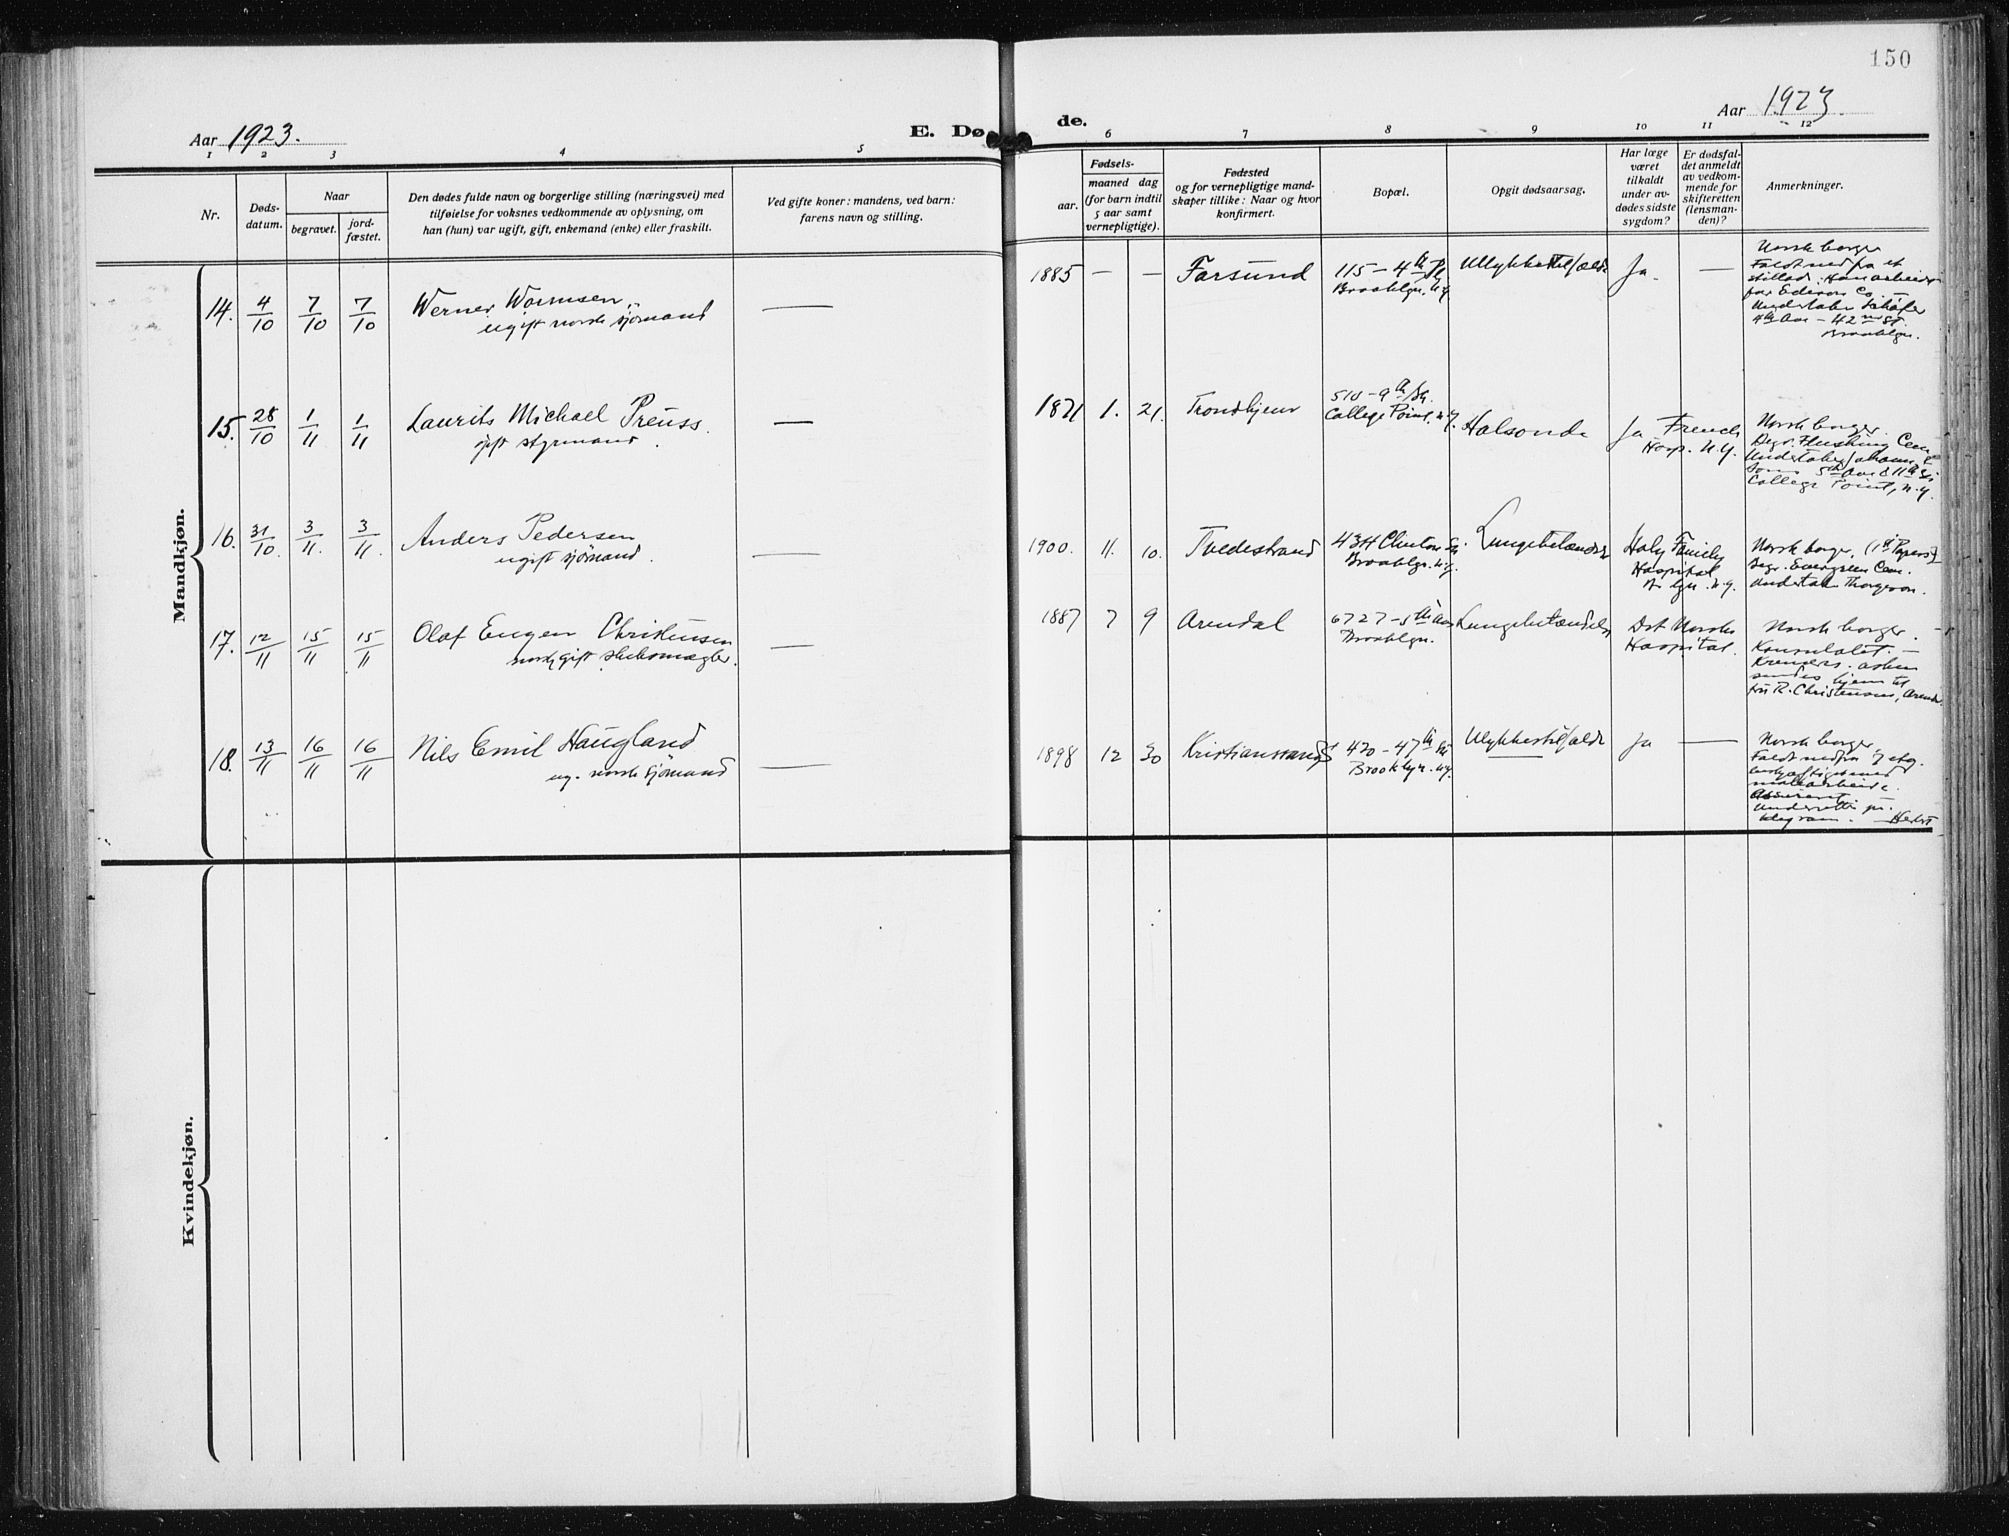 150
Aar 1923.
E. Dø
de.
Aar 1923
1 2 3 4 5
6 7 8 9 10 11 12
Nr.
Døds-
datum.
Naar
begravet.
jord-
fæstet.
Den dødes fulde navn og borgerlige stilling (næringsvei) med
tilføielse for voksnes vedkommende av oplysning, om
han (hun) var ugift, gift, enkemand (enke) eller fraskilt.
Ved gifte koner: mandens, ved barn:
farens navn og stilling.
Fødsels-
aar.
maaned dag
(for barn indtil
5 aar samt
vernepligtige).
Fødested
og for vernepligtige mand-
skaper tillike: Naar og hvor
konfirmert.
Bopæl.
Opgit dødsaarsag.
Har læge
været
tilkaldt
under av-
dødes sidste
sygdom?
Er dødsfal-
det anmeldt
av vedkom-
mende for
skifteretten
(lensman-
den)?
Anmerkninger.
Mandkjøn.
14. 4/10 7/10 7/10 Werner Wormsen
ugift norsk sjömand
—
1885 — — Farsund
115 - 4th Pl.
Brooklyn. N.Y.
Ulykkestilfælde
Ja. —
Norsk borger
Faldt ned fra et
stillads. Han arbeidet
for Edison Co. —
Undertaker Schäfer
4th Ave - 42nd St.
Brooklyn.
15. 28/10 1/11 1/11 Laurits Michael Preuss.
gift styrmand.
—
1871 1. 21. Trondhjem
510 - 9th St.
College Point. N.Y.
Halsonde
Ja French
Hosp. N.Y.
Norsk borger.
Begr. Flushing Cem.
Undertaker &
Sons 5th Ave & 11th St.
College Point, N.Y.
16. 31/10. 3/11. 3/11. Anders Pedersen
ugift sjömand.
—
1900. 11. 10. Tvedestrand
434 Clinton St.
Brooklyn. N.Y.
Lungebetændelse
Holy Family
Hospital
N.Y.
Norsk borger, (1st Papers)
Begr. Evergreen Cem.
Undertak Thorgeson.
17. 12/11 15/11 15/11 Olaf Eugen Christensen
norsk gift skibsmægler.
—
1887 7 9 Arendal
6727 - 5th Ave
Brooklyn.
Lungebetændelse
Det Norske
Hospital.
Norsk borger.
Konsulatet. —
Kremers. asken
sendes hjem til
fru R. Christensen, Arendal
18. 13/11 16/11 16/11 Nils Emil Haugland
ug. norsk sjömand
—
1898 12 30 Kristianssand S
420 - 47th St.
Brooklyn. N.Y.
Ulykkestilfælde
Ja —
Norsk borger
Faldt ned fra 7 etg.
beskjæftiget med
malerarbeide.
Underrettet pr.
telegram.
Kvindekjøn.